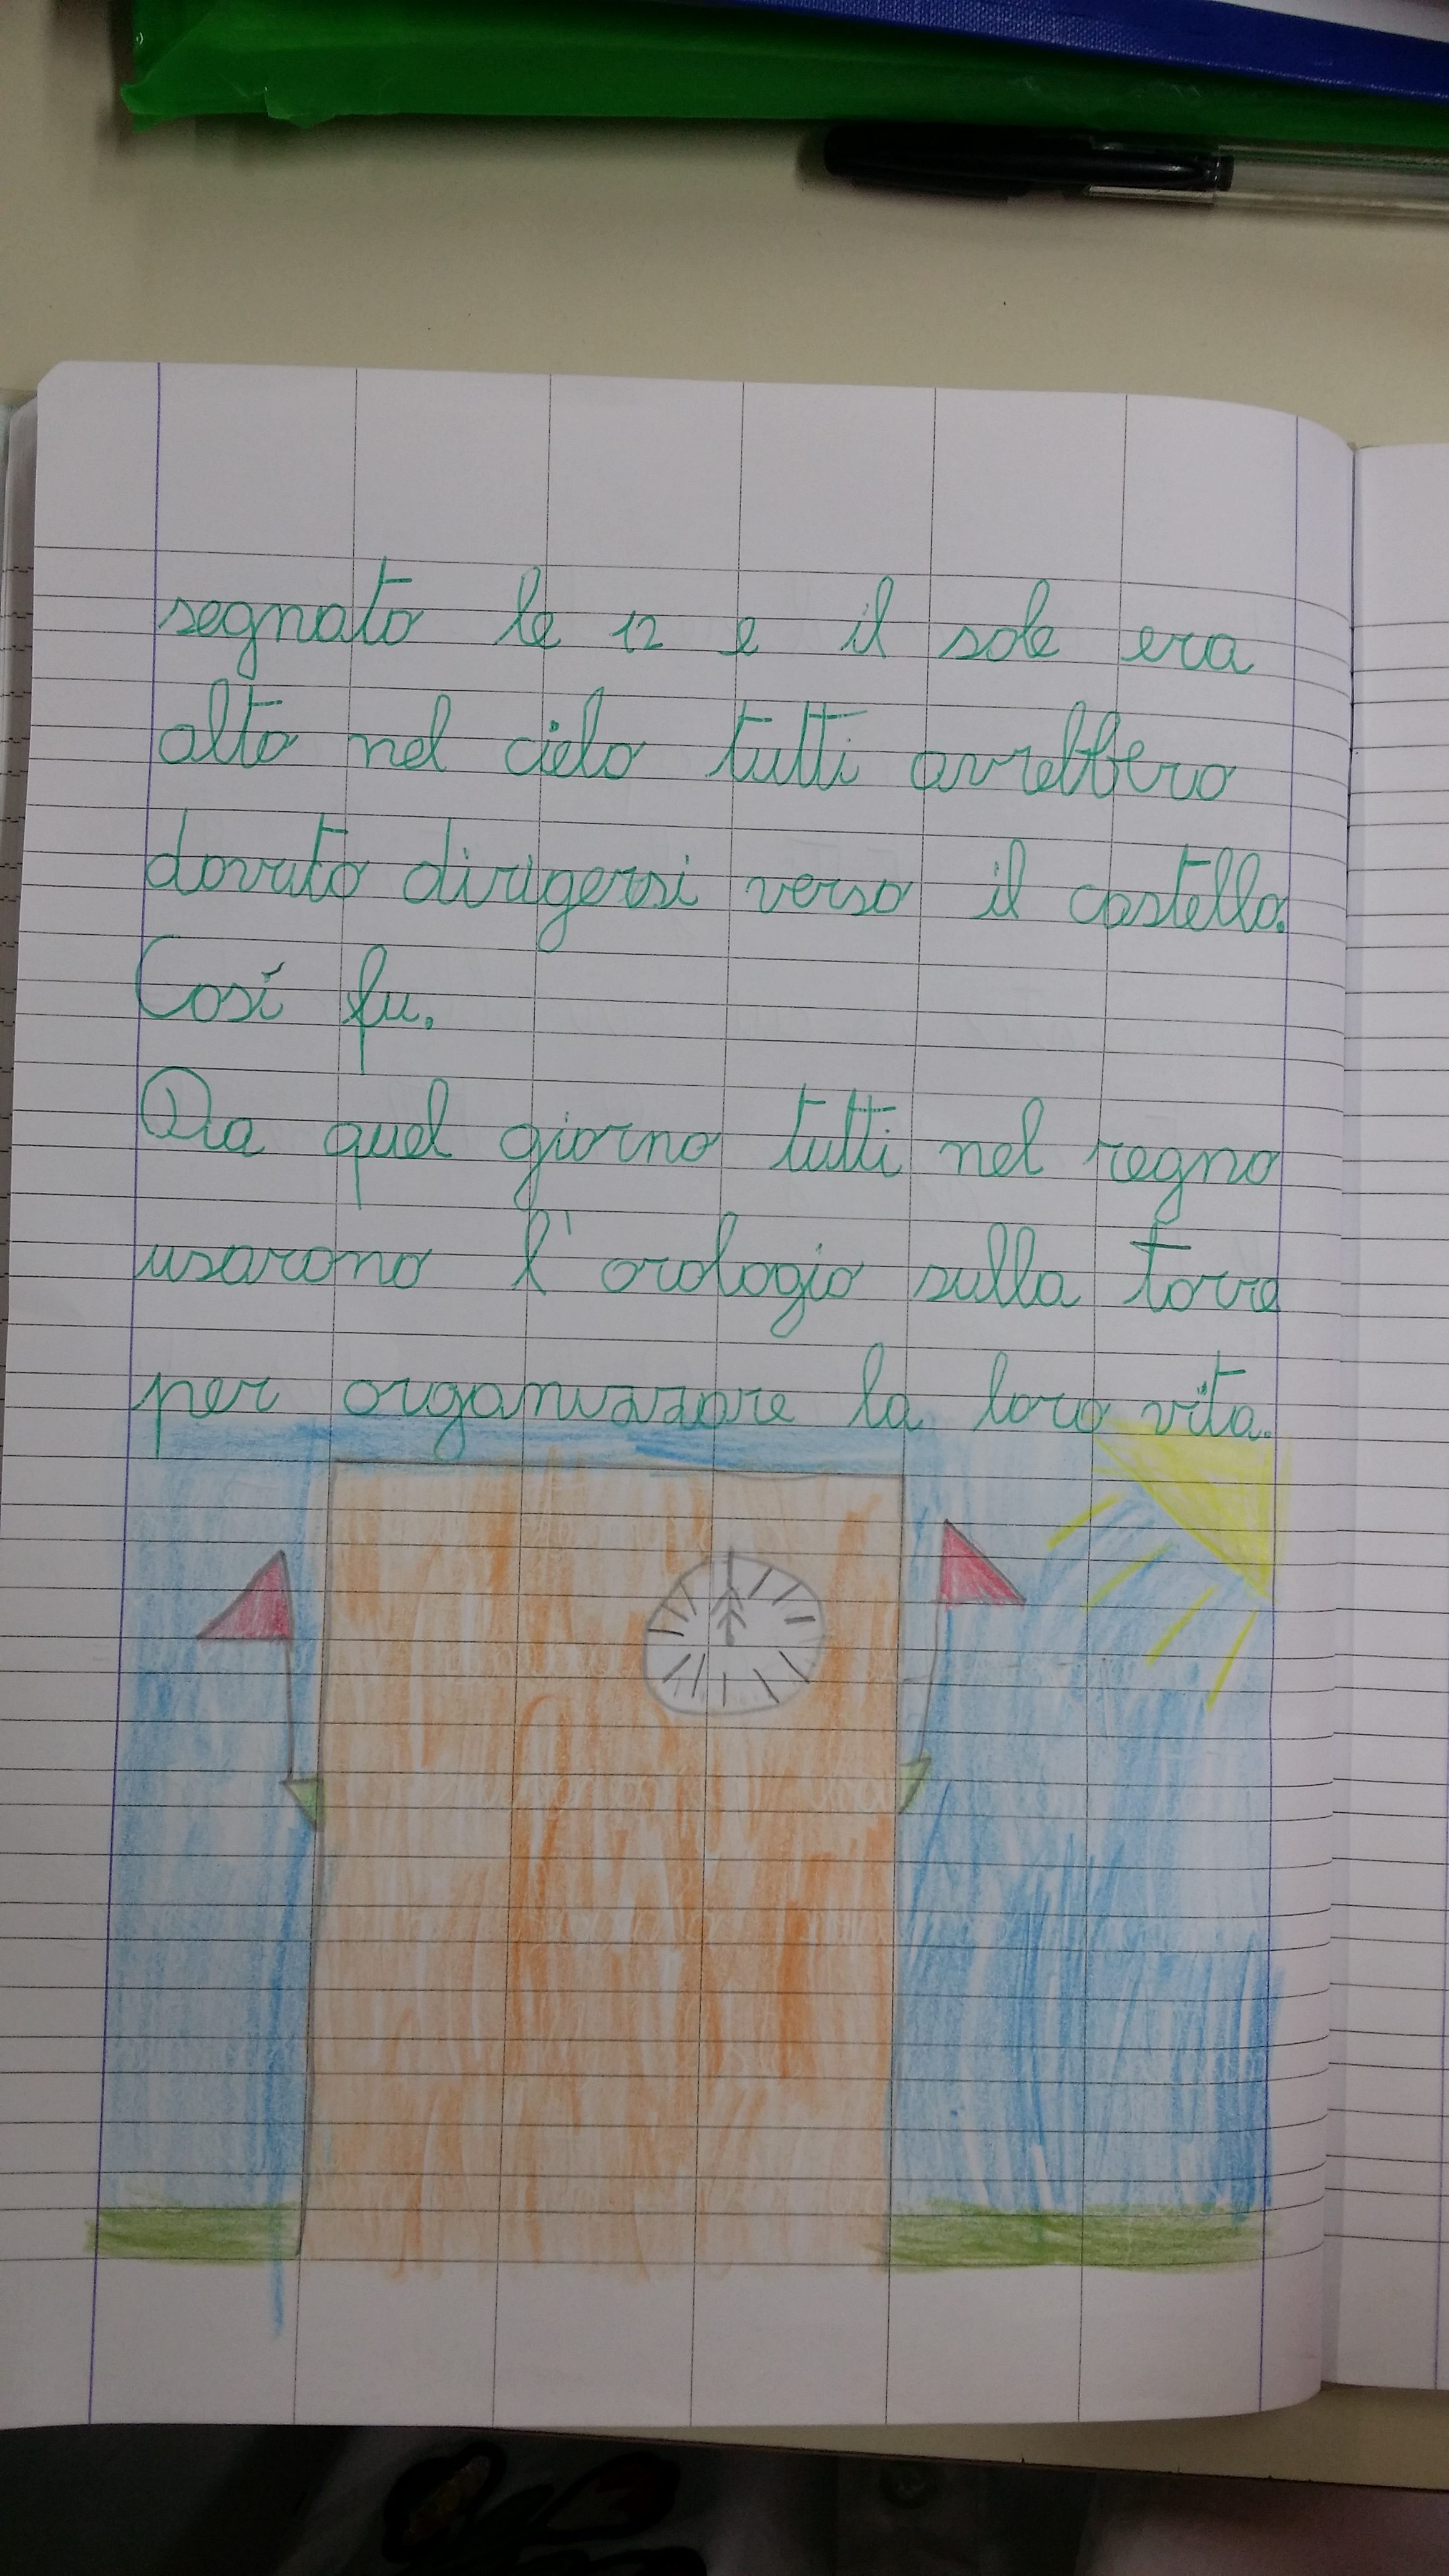 segnato le 12 e il sole era
alto nel cielo tutti avrebbero
dovuto dirigersi verso il castello.
Così fu.
Da quel giorno tutti nel regno
usarono l'orologio sulla torre
per organizzare la loro vita.